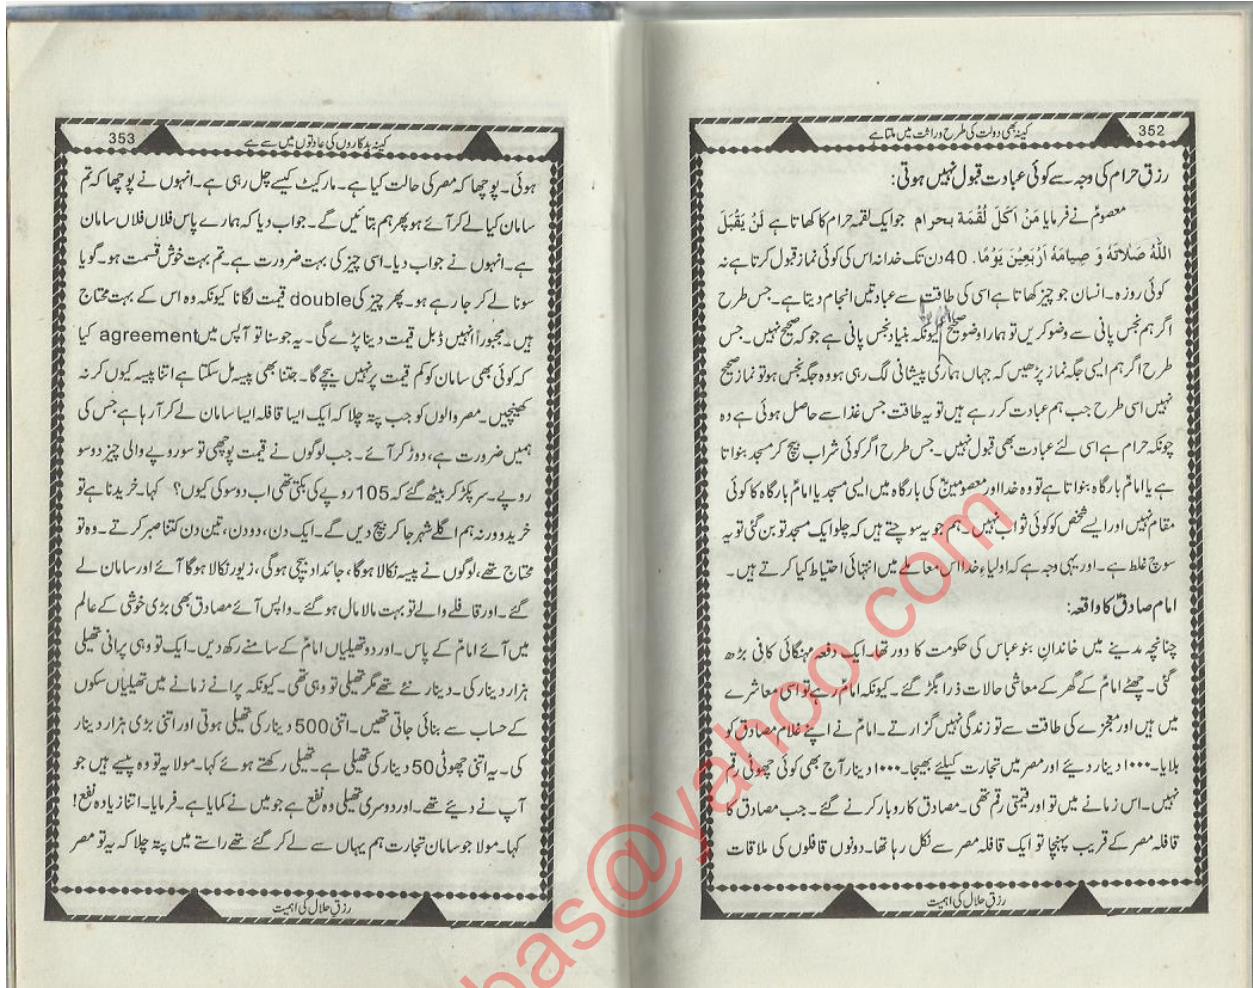 352
کینہ بھی دولت کی طرح وراثت میں ملتا ہے
رزقِ حرام کی وجہ سے کوئی عبادت قبول نہیں ہوتی:
معصومؑ نے فرمایا مَنْ اَکَلَ لُقْمَة بحرام جو ایک لقمہ حرام کا کھاتا ہے لَنْ یَقْبَلَ
اللّٰہُ صَلَاتَہُ وَ صِیامَهُ اَرْبَعِیْنَ یَوْمًا. 40 دن تک خدا نہ اس کی کوئی نماز قبول کرتا ہے نہ
کوئی روزہ۔ انسان جو چیز کھاتا ہے اسی کی طاقت سے عبادتیں انجام دیتا ہے۔ جس طرح
اگر ہم نجس پانی سے وضو کریں تو ہمارا وضو صحیح کیونکہ بنیاد نجس پانی ہے جو کہ صحیح نہیں۔ جس
طرح اگر ہم ایسی جگہ نماز پڑھیں کہ جہاں ہماری پیشانی لگ رہی ہو وہ جگہ نجس ہو تو نماز صحیح
نہیں اسی طرح جب ہم عبادت کر رہے ہیں تو یہ طاقت جس غذا سے حاصل ہوئی ہے وہ
چونکہ حرام ہے اسی لئے عبادت بھی قبول نہیں۔ جس طرح اگر کوئی شراب بیچ کر مسجد بنواتا
ہے یا امامؑ بارگاہ بنواتا ہے تو وہ خدا اور معصومینؑ کی بارگاہ میں ایسی مسجد یا امامؑ بارگاہ کا کوئی
مقام نہیں اور ایسے شخص کو کوئی ثواب نہیں۔ ہم جو یہ سوچتے ہیں کہ چلو ایک مسجد تو بن گئی تو یہ
سوچ غلط ہے۔ اور یہی وجہ ہے کہ اولیاءِ خدا اس معاملے میں انتہائی احتیاط کیا کرتے ہیں۔
امام صادقؑ کا واقعہ:
چنانچہ مدینے میں خاندانِ بنو عباس کی حکومت کا دور تھا۔ ایک دفعہ مہنگائی کافی بڑھ
گئی۔ چھٹے امامؑ کے گھر کے معاشی حالات ذرا بگڑ گئے۔ کیونکہ امامؑ رہے تو اسی معاشرے
میں ہیں اور معجزے کی طاقت سے تو زندگی نہیں گزارتے۔ امامؑ نے اپنے غلام مصادق کو
بلایا۔ ۱۰۰۰ دینار دیئے اور مصر میں تجارت کیلئے بھیجا۔ ۱۰۰۰ دینار آج بھی کوئی چھوٹی رقم
نہیں۔ اس زمانے میں تو اور قیمتی رقم تھی۔ مصادق کاروبار کرنے گئے۔ جب مصادق کا
قافلہ مصر کے قریب پہنچا تو ایک قافلہ مصر سے نکل رہا تھا۔ دونوں قافلوں کی ملاقات
رزقِ حلال کی اہمیت
353
کینہ بدکاروں کی عادتوں میں سے ہے
ہوئی۔ پوچھا کہ مصر کی حالت کیا ہے۔ مارکیٹ کیسے چل رہی ہے۔ انہوں نے پوچھا کہ تم
سامان کیا لے کر آئے ہو پھر ہم بتائیں گے۔ جواب دیا کہ ہمارے پاس فلاں فلاں سامان
ہے۔ انہوں نے جواب دیا۔ اسی چیز کی بہت ضرورت ہے۔ تم بہت خوش قسمت ہو۔ گویا
سونا لے کر جا رہے ہو۔ پھر چیز کی double قیمت لگانا کیونکہ وہ اس کے بہت محتاج
ہیں۔ مجبوراً انہیں ڈبل قیمت دینا پڑے گی۔ یہ جو سنا تو آپس میں agreement کیا
کہ کوئی بھی سامان کو کم قیمت پر نہیں بیچے گا۔ جتنا بھی پیسہ مل سکتا ہے اتنا پیسہ کیوں کر نہ
کھینچیں۔ مصر والوں کو جب پتہ چلا کہ ایک ایسا قافلہ ایسا سامان لے کر آ رہا ہے جس کی
ہمیں ضرورت ہے، دوڑ کر آئے۔ جب لوگوں نے قیمت پوچھی تو سو روپے والی چیز دو سو
روپے۔ سر پکڑ کر بیٹھ گئے کہ 105 روپے کی بکتی تھی اب دو سو کی کیوں؟ کہا۔ خریدنا ہے تو
خریدو ورنہ ہم اگلے شہر جا کر بیچ دیں گے۔ ایک دن، دو دن، تین دن کتنا صبر کرتے۔ وہ تو
محتاج تھے، لوگوں نے پیسہ نکالا ہوگا، جائداد بیچی ہوگی، زیور نکالا ہوگا آئے اور سامان لے
گئے۔ اور قافلے والے تو بہت مالا مال ہو گئے۔ واپس آئے مصادق بھی بڑی خوشی کے عالم
میں آئے امامؑ کے پاس۔ اور دو تھیلیاں امامؑ کے سامنے رکھ دیں۔ ایک تو وہی پرانی تھیلی
ہزار دینار کی۔ دینار نئے تھے مگر تھیلی تو وہی تھی۔ کیونکہ پرانے زمانے میں تھیلیاں سکوں
کے حساب سے بنائی جاتی تھیں۔ اتنی 500 دینار کی تھیلی ہوتی اور اتنی بڑی ہزار دینار
کی۔ یہ اتنی چھوٹی 50 دینار کی تھیلی ہے۔ تھیلی رکھتے ہوئے کہا۔ مولا یہ تو وہ پیسے ہیں جو
آپ نے دیئے تھے۔ اور دوسری تھیلی وہ نفع ہے جو میں نے کمایا ہے۔ فرمایا۔ اتنا زیادہ نفع!
کہا۔ مولا جو سامان تجارت ہم یہاں سے لے کر گئے تھے راستے میں پتہ چلا کہ یہ تو مصر
رزقِ حلال کی اہمیت
bas@yahoo.com